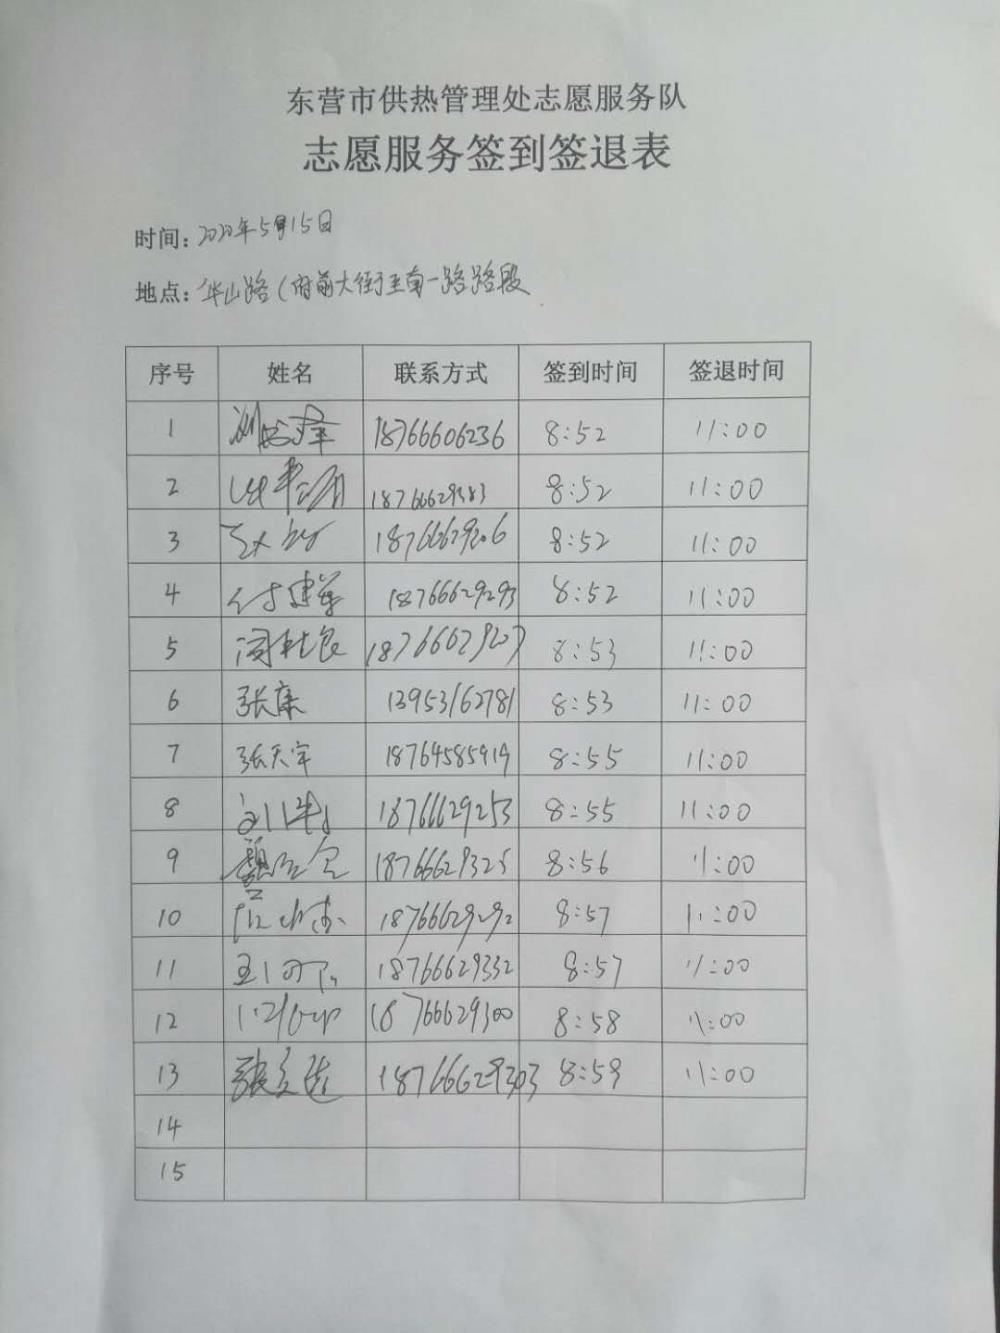 东营市供热管理处志愿服务队
志愿服务签到签退表
时间: 2020年5月15日
地点: 华山路(府前大街至南一路路段
序号 姓名 联系方式 签到时间 签退时间
1 18766606236 8:52 11:00
2 18766629383 8:52 11:00
3 18766629206 8:52 11:00
4 付建军 18766629293 8:52 11:00
5 18766629207 8:53 11:00
6 张康 13953162781 8:53 11:00
7 张天宇 18764585919 8:55 11:00
8 18766629253 8:55 11:00
9 18766629325 8:56 11:00
10 18766629292 8:57 11:00
11 18766629332 8:57 11:00
12 18766629300 8:58 11:00
13 18766629303 8:59 11:00
14
15